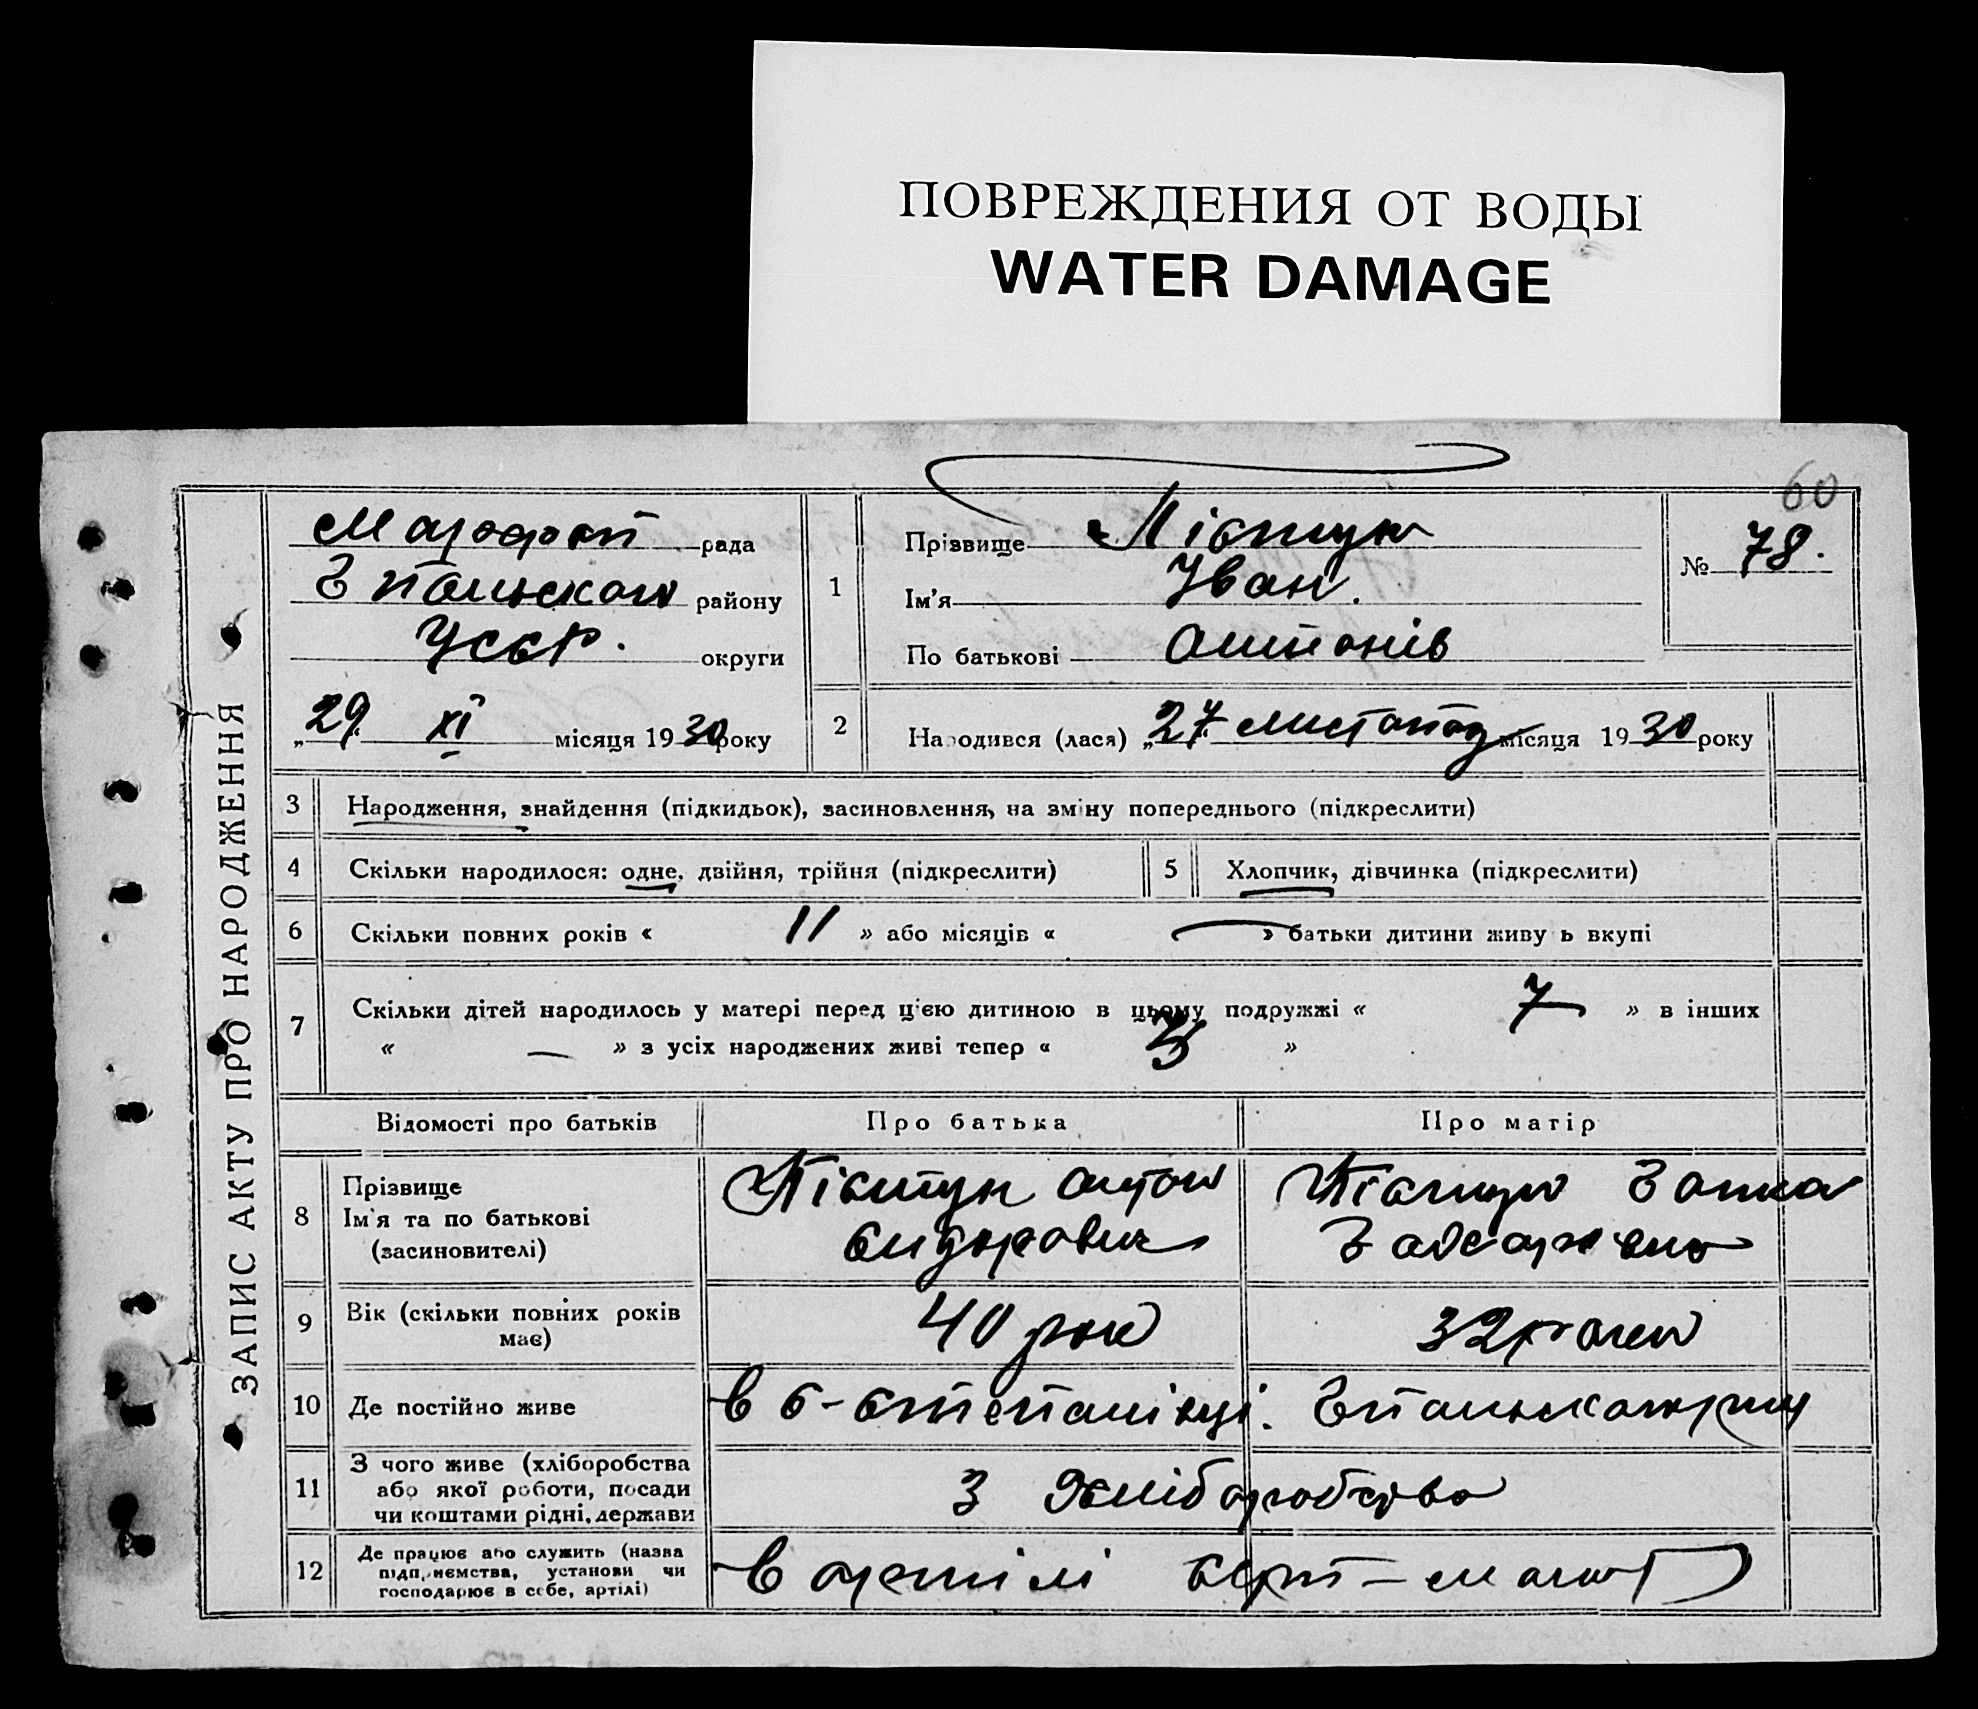 ПОВРЕЖДЕНИЯ ОТ ВОДЫ
WATER DAMAGE
60
ЗАПИС АКТУ ПРО НАРОДЖЕННЯ
рада
району
УСРР. округи
„29 XI місяця 1930 року
1
Прізвище
Ім'я Іван.
По батькові Антонів
№ 78.
2 Народився (лася) „27 листопад місяця 1930 року
3 Народження, знайдення (підкидьок), засиновлення, на зміну попереднього (підкреслити)
4 Скільки народилося: одне, двійня, трійня (підкреслити) 5 Хлопчик, дівчинка (підкреслити)
6 Скільки повних років « 11 » або місяців « — » батьки дитини живуть вкупі
7 Скільки дітей народилось у матері перед цією дитиною в цьому подружжі « 7 » в інших
« — » з усіх народжених живі тепер « »
Відомості про батьків Про батька Про матір
8 Прізвище
Ім'я та по батькові
(засиновителі)
Антон
Сидорович
9 Вік (скільки повних років
має)
40 рок 32 роки
10 Де постійно живе в с-Степанівці.
11 З чого живе (хліборобства
або якої роботи, посади
чи коштами рідні, держави
З хліборобства
12 Де працює або служить (назва
підприємства, установи чи
господарює в себе, артілі)
в артілі